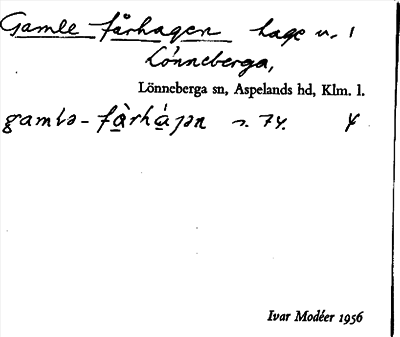 Gamle fårhagen hage n. 1
Lönneberga,
Lönneberga sn, Aspelands hd, Klm. l.
gamlə-fàrhájən s. 74. 4
Ivar Modéer 1956